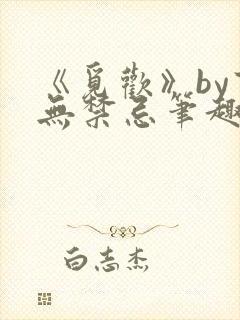 《覓歡》by
無禁忌筆趣
白志杰